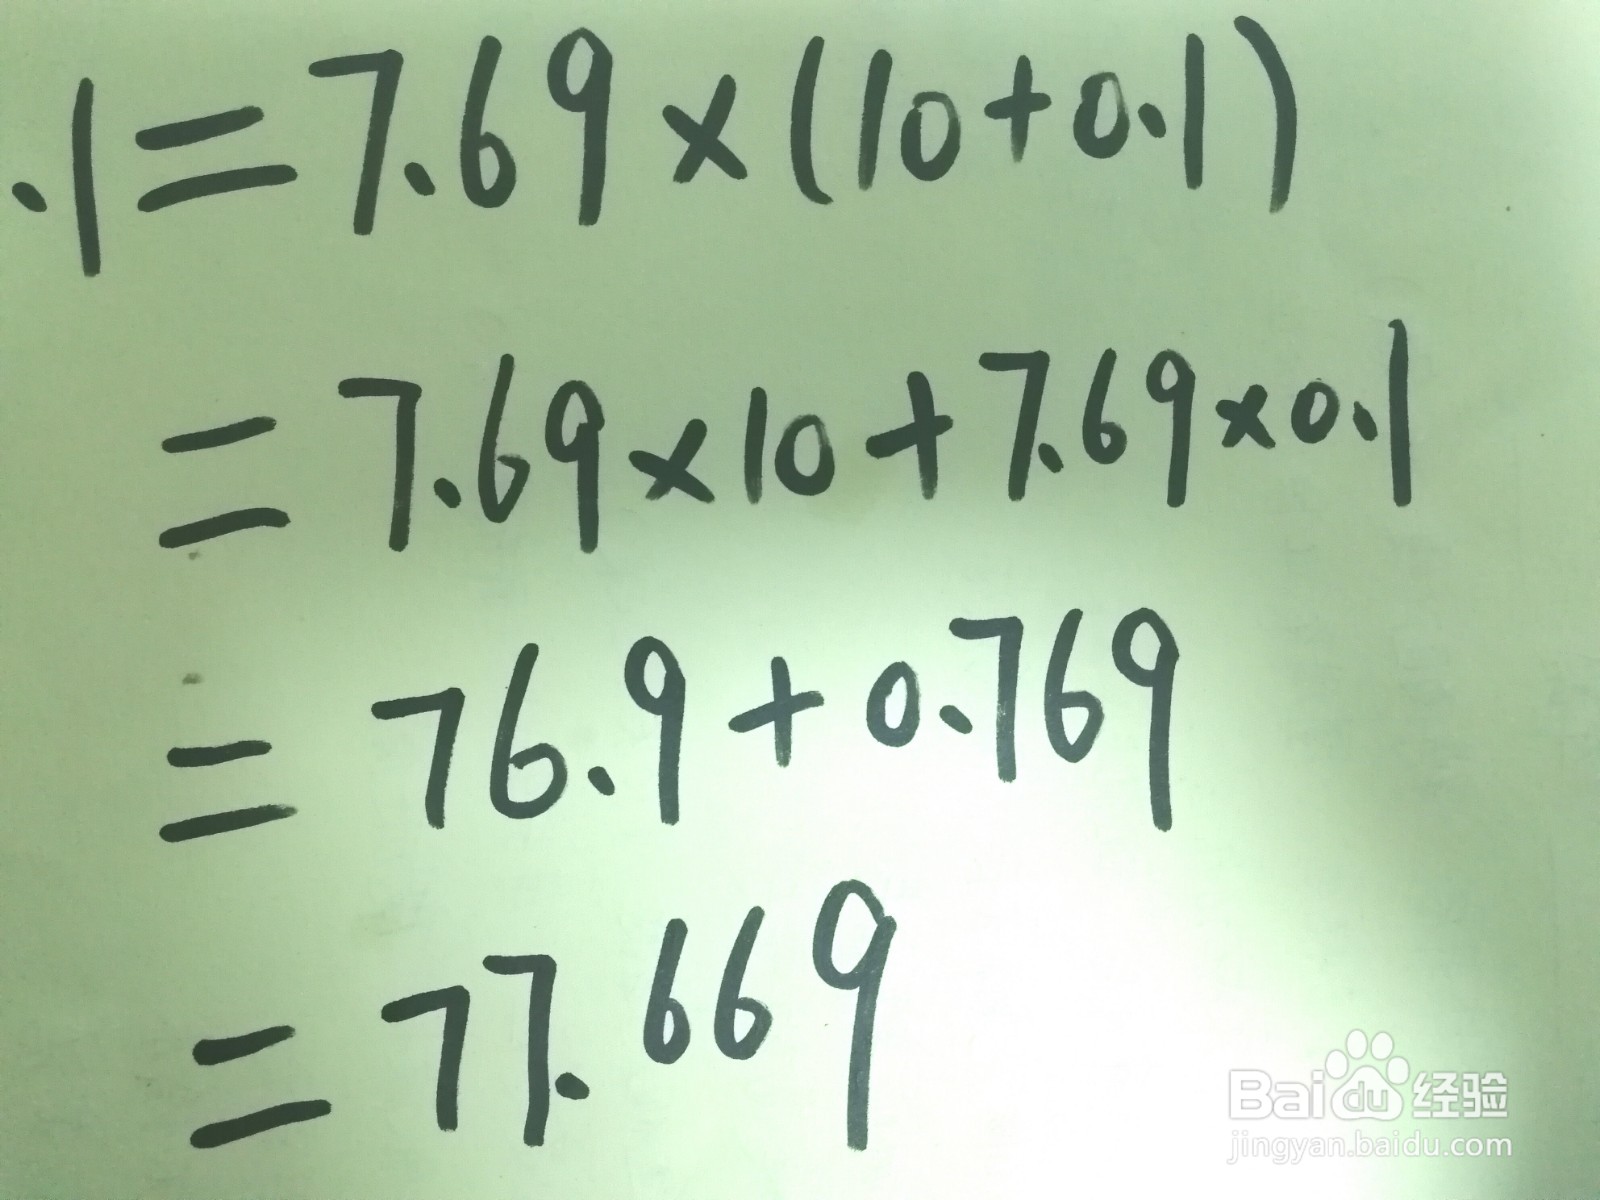 .1=7.69×(10+0.1)
=7.69×10+7.69×0.1
=76.9+0.769
=77.669
Baidu经验
jingyan.baidu.com